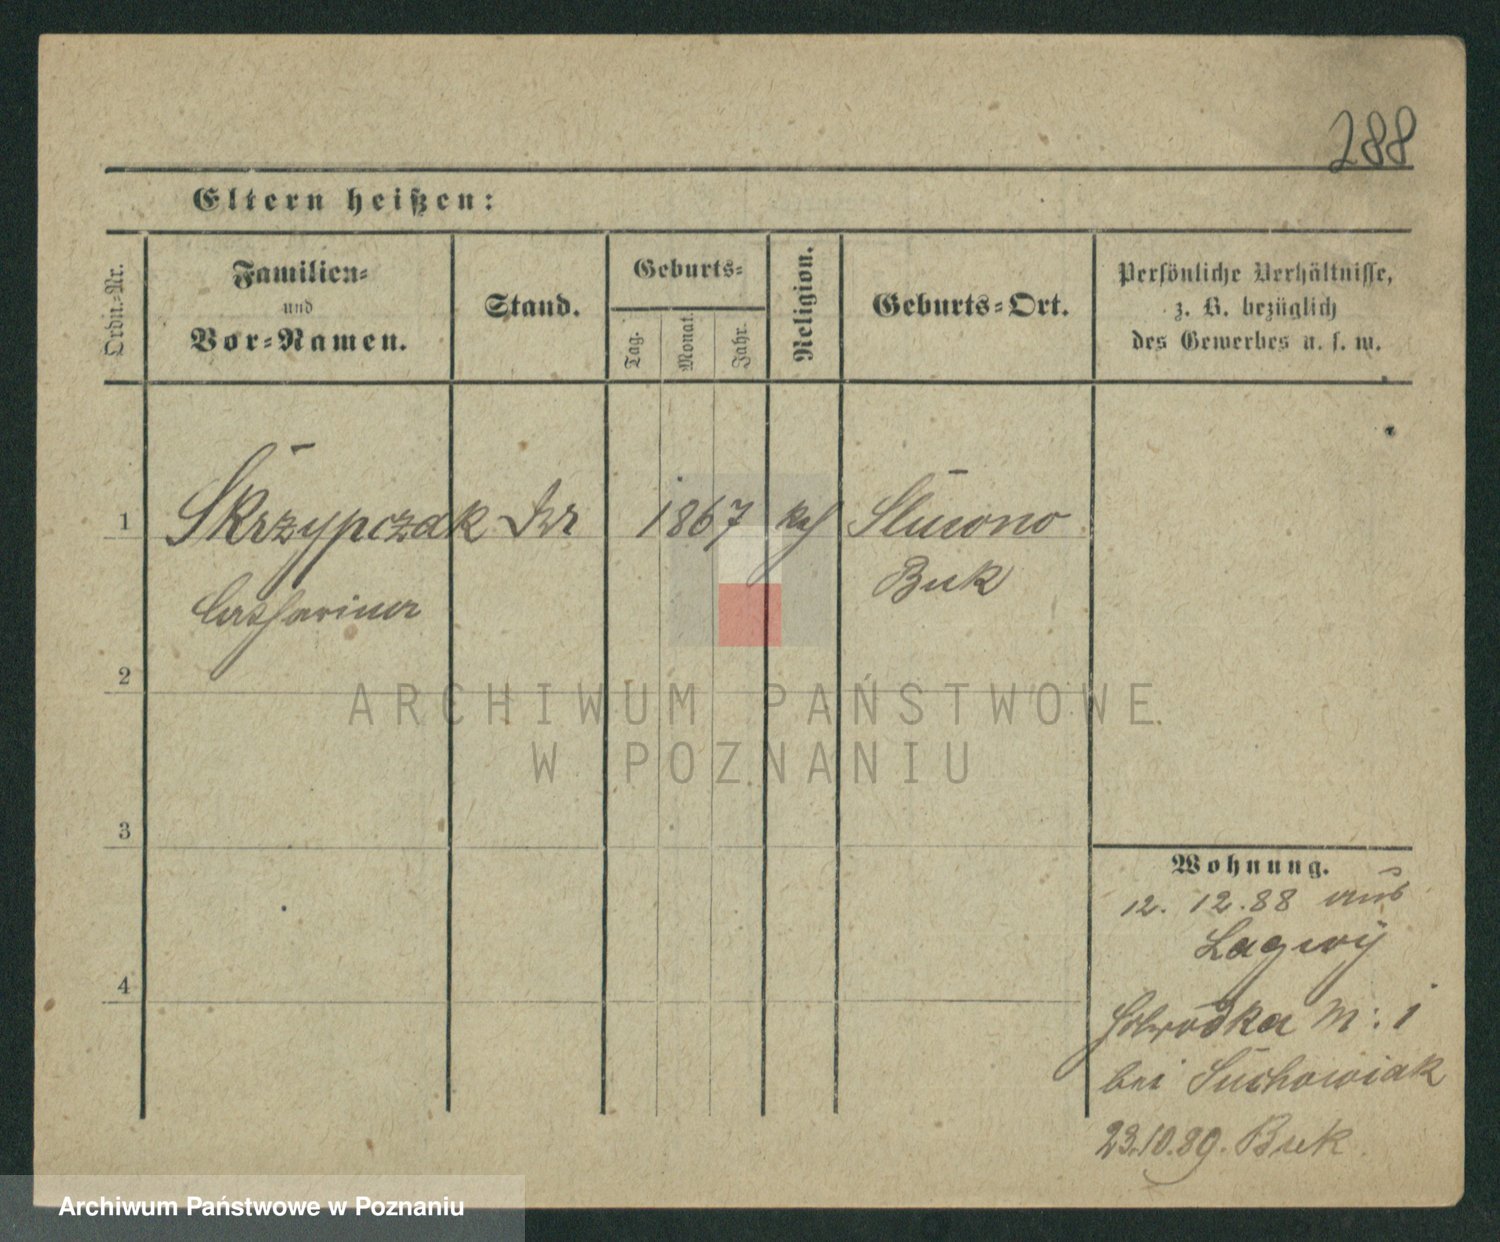 288
Eltern heißen:
Ordn.-Nr.
Familien-
und
Vor-Namen.
Stand.
Geburts-
Tag.
Monat.
Jahr.
Religion.
Geburts-Ort.
Persönliche Verhältnisse,
z. B. bezüglich
des Gewerbes u. s. w.
1 Skrzypczak 1867 Sliwno
Catharina Buk
2
3
4
Wohnung.
12. 12.88 aus
Lagwy
bei Suchowiak
23.10.89. Buk
ARCHIWUM PAŃSTWOWE
W POZNANIU
Archiwum Państwowe w Poznaniu